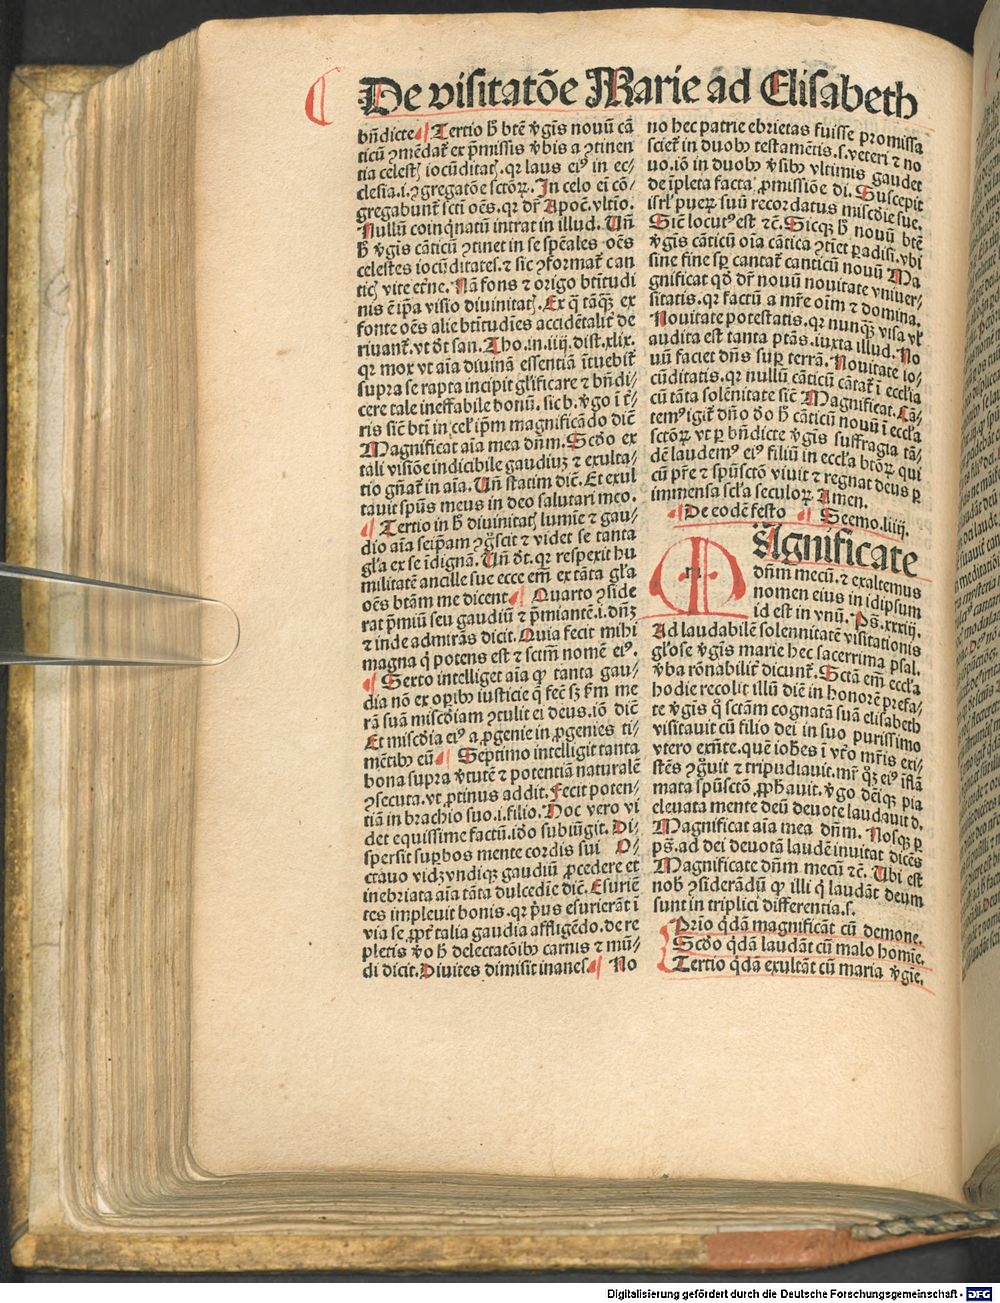 De visitatōe Marie ad Elisabeth
bn̄dicte Tertio h̄ btē v̄gīs nouū cā
ticū ꝯmēdat ex p̄missis v̄bis a ꝯtinen
tia celestꝭ iocūditatꝭ. qr laus eiꝰ in ec-
clesia .i. ꝯgregatōe sctōꝝ. In celo ei cō-
gregabunt̄ scti oēs. qr dr̄ Apoc̄. vltīo.
Nullū coinqnatū intrat in illud. Un̄
h̄ v̄gīs cāticū ꝯtinet in se spēales oēs
celestes iocūditates. ⁊ sic ꝯformat̄ can
ticꝭ vite etn̄e. Nā fons ⁊ origo btītudi
nis ē ip̄a visio diuinitatꝭ. Ex q̄ tāqꝫ ex
fonte oēs alie btītudīes accidētalit̄ de
riuant̄. vt dt̄ san. Tho. in. iiij. dist. xlix.
qr mox vt aīa diuinā essentiā ītuebit̄
supra se rapta incipit gl̄ificare ⁊ bn̄di-
cere tale ineffabile bonū. sic b. v̄go ī t̄-
ris siē btī in cel ip̄m magnificādo diē
Magnificat aīa mea dn̄m. Scd̄o ex
tali visiōe indicibile gaudiuꝫ ⁊ exulta-
tio gn̄at̄ in aīa. Un̄ statim diē. Et exul
tauit sp̄us meus in deo salutari meo.
Tertio in h̄ diuinitatꝭ lumīe ⁊ gau-
dio aīa seip̄am ꝯgscit ⁊ videt se tanta
gl̄a ex se īdignā. Un̄ dt̄. qr respexit hu
militatē ancille sue ecce em̄ ex tāta gl̄a
oēs btām me dicent Quarto ꝯside
rat p̄miū seu gaudiū ⁊ p̄miantē .i. dn̄ꝫ
⁊ inde admirās dicit. Quia fecit mihi
magna q̇ potens est ⁊ sctm̄ nomē eiꝰ.
Sexto intelliget aīa ꝙ tanta gau-
dia nō ex opibꝰ iusticie q̄ fec̄ sꝫ fm̄ me
rā suā miscd̄iam ꝯtulit ei deus. iō diē
Et miscd̄ia eiꝰ a ꝓgenie in ꝓgenies ti-
mētibꝰ eū Septimo intelligit tanta
bona supra v̄tutē ⁊ potentiā naturalē
ꝯsecuta. vt ꝓtinus addit. Fecit poten-
tiā in brachio suo .i. filio. Hoc vero vi
det equissime factū. idō subiūgit. Di-
spersit supbos mente cordis sui O-
ctauo vidꝫ vndiqꝫ gaudiū ꝓcedere et
inebriata aīa tāta dulcedīe diē. Esuriē
tes impleuit bonis. qr p̄us esurierāt ī
via se ꝓpt̄ talia gaudia affligēdo. de re
pletis v̄o h̄ delectatōibꝰ carnis ⁊ mū-
di dicit. Diuites dimisit inanes No
no hec patrie ebrietas fuisse promissa
sciet̄ in duobꝰ testamētis .s. veteri ⁊ no
uo. iō in duobꝰ v̄sibꝰ vltimis gaudet
de īpleta facta ꝓmissiōe di. Suscepit
isrl̄ pueꝝ suū recordatus miscd̄ie sue.
Sic̄ locutꝰ est ⁊c̄. Sicqꝫ h̄ nouū btē
v̄gīs cāticū oīa cātica ꝯtiet padisi. vbi
sine fine sp cantat̄ canticū nouū Ma
gnificat qd̄ dr̄ nouū nouitate vniuer-
sitatis. qr factū a mr̄e oīm ⁊ domina.
Nouitate potestatis. qr nunqꝫ visa vl̄
audita est tanta ptās. iuxta illud. No
uū faciet dn̄s sup terrā. Nouitate io-
cūditatis. qr nullū cāticū cātat̄ ī eccl̄ia
cū tāta solēnitate siē Magnificat. Cā-
temꝰ igit̄ dn̄o dō h̄ cāticū nouū ī eccl̄a
sctōꝝ vt p bn̄dicte v̄gīs suffragia tā-
dē laudemꝰ eiꝰ filiū in eccl̄a btōꝝ qui
cū pr̄e ⁊ sp̄usctō viuit ⁊ regnat deus p
immensa scl̄a seculoꝝ Amen.
De eodē festo Seemo. liiij.
MAgnificate
dn̄m mecū. ⁊ exaltemus
nomen eius in idipsum
id est in vnū. Ps. xxxiij.
Ad laudabilē solennitatē visitationis
gl̄ose v̄gīs marie hec sacerrima psal.
v̄ba rōnabilit̄ dicunt̄. Sctā em̄ eccl̄a
hodie recolit illū diē in honorē prefa-
te v̄gīs q̄ sctām cognatā suā elisabeth
visitauit cū filio dei in suo purissimo
vtero exn̄te. quē iohēs ī vt̄o mr̄is exi-
stēs ꝯguit ⁊ tripudiauit. mr̄ qꝫ eiꝰ īflā
mata sp̄usctō ꝓph̄auit. v̄go dēiqꝫ pia
eleuata mente deū deuote laudauit d.
Magnificat aīa mea dn̄m. Nosqꝫ p
ps̄. ad dei deuotā laudē inuitat dicēs
Magnificate dn̄m mecū ⁊c̄. Ubi est
nobꝭ ꝯsiderādū ꝙ illi q̇ laudāt deum
sunt in triplici differentia .s.
Prīo qdā magnificāt cū demone.
Scd̄o qdā laudāt cū malo homīe.
Tertio qdā exultāt cū maria v̄gīe.
Digitalisierung gefördert durch die Deutsche Forschungsgemeinschaft - DFG